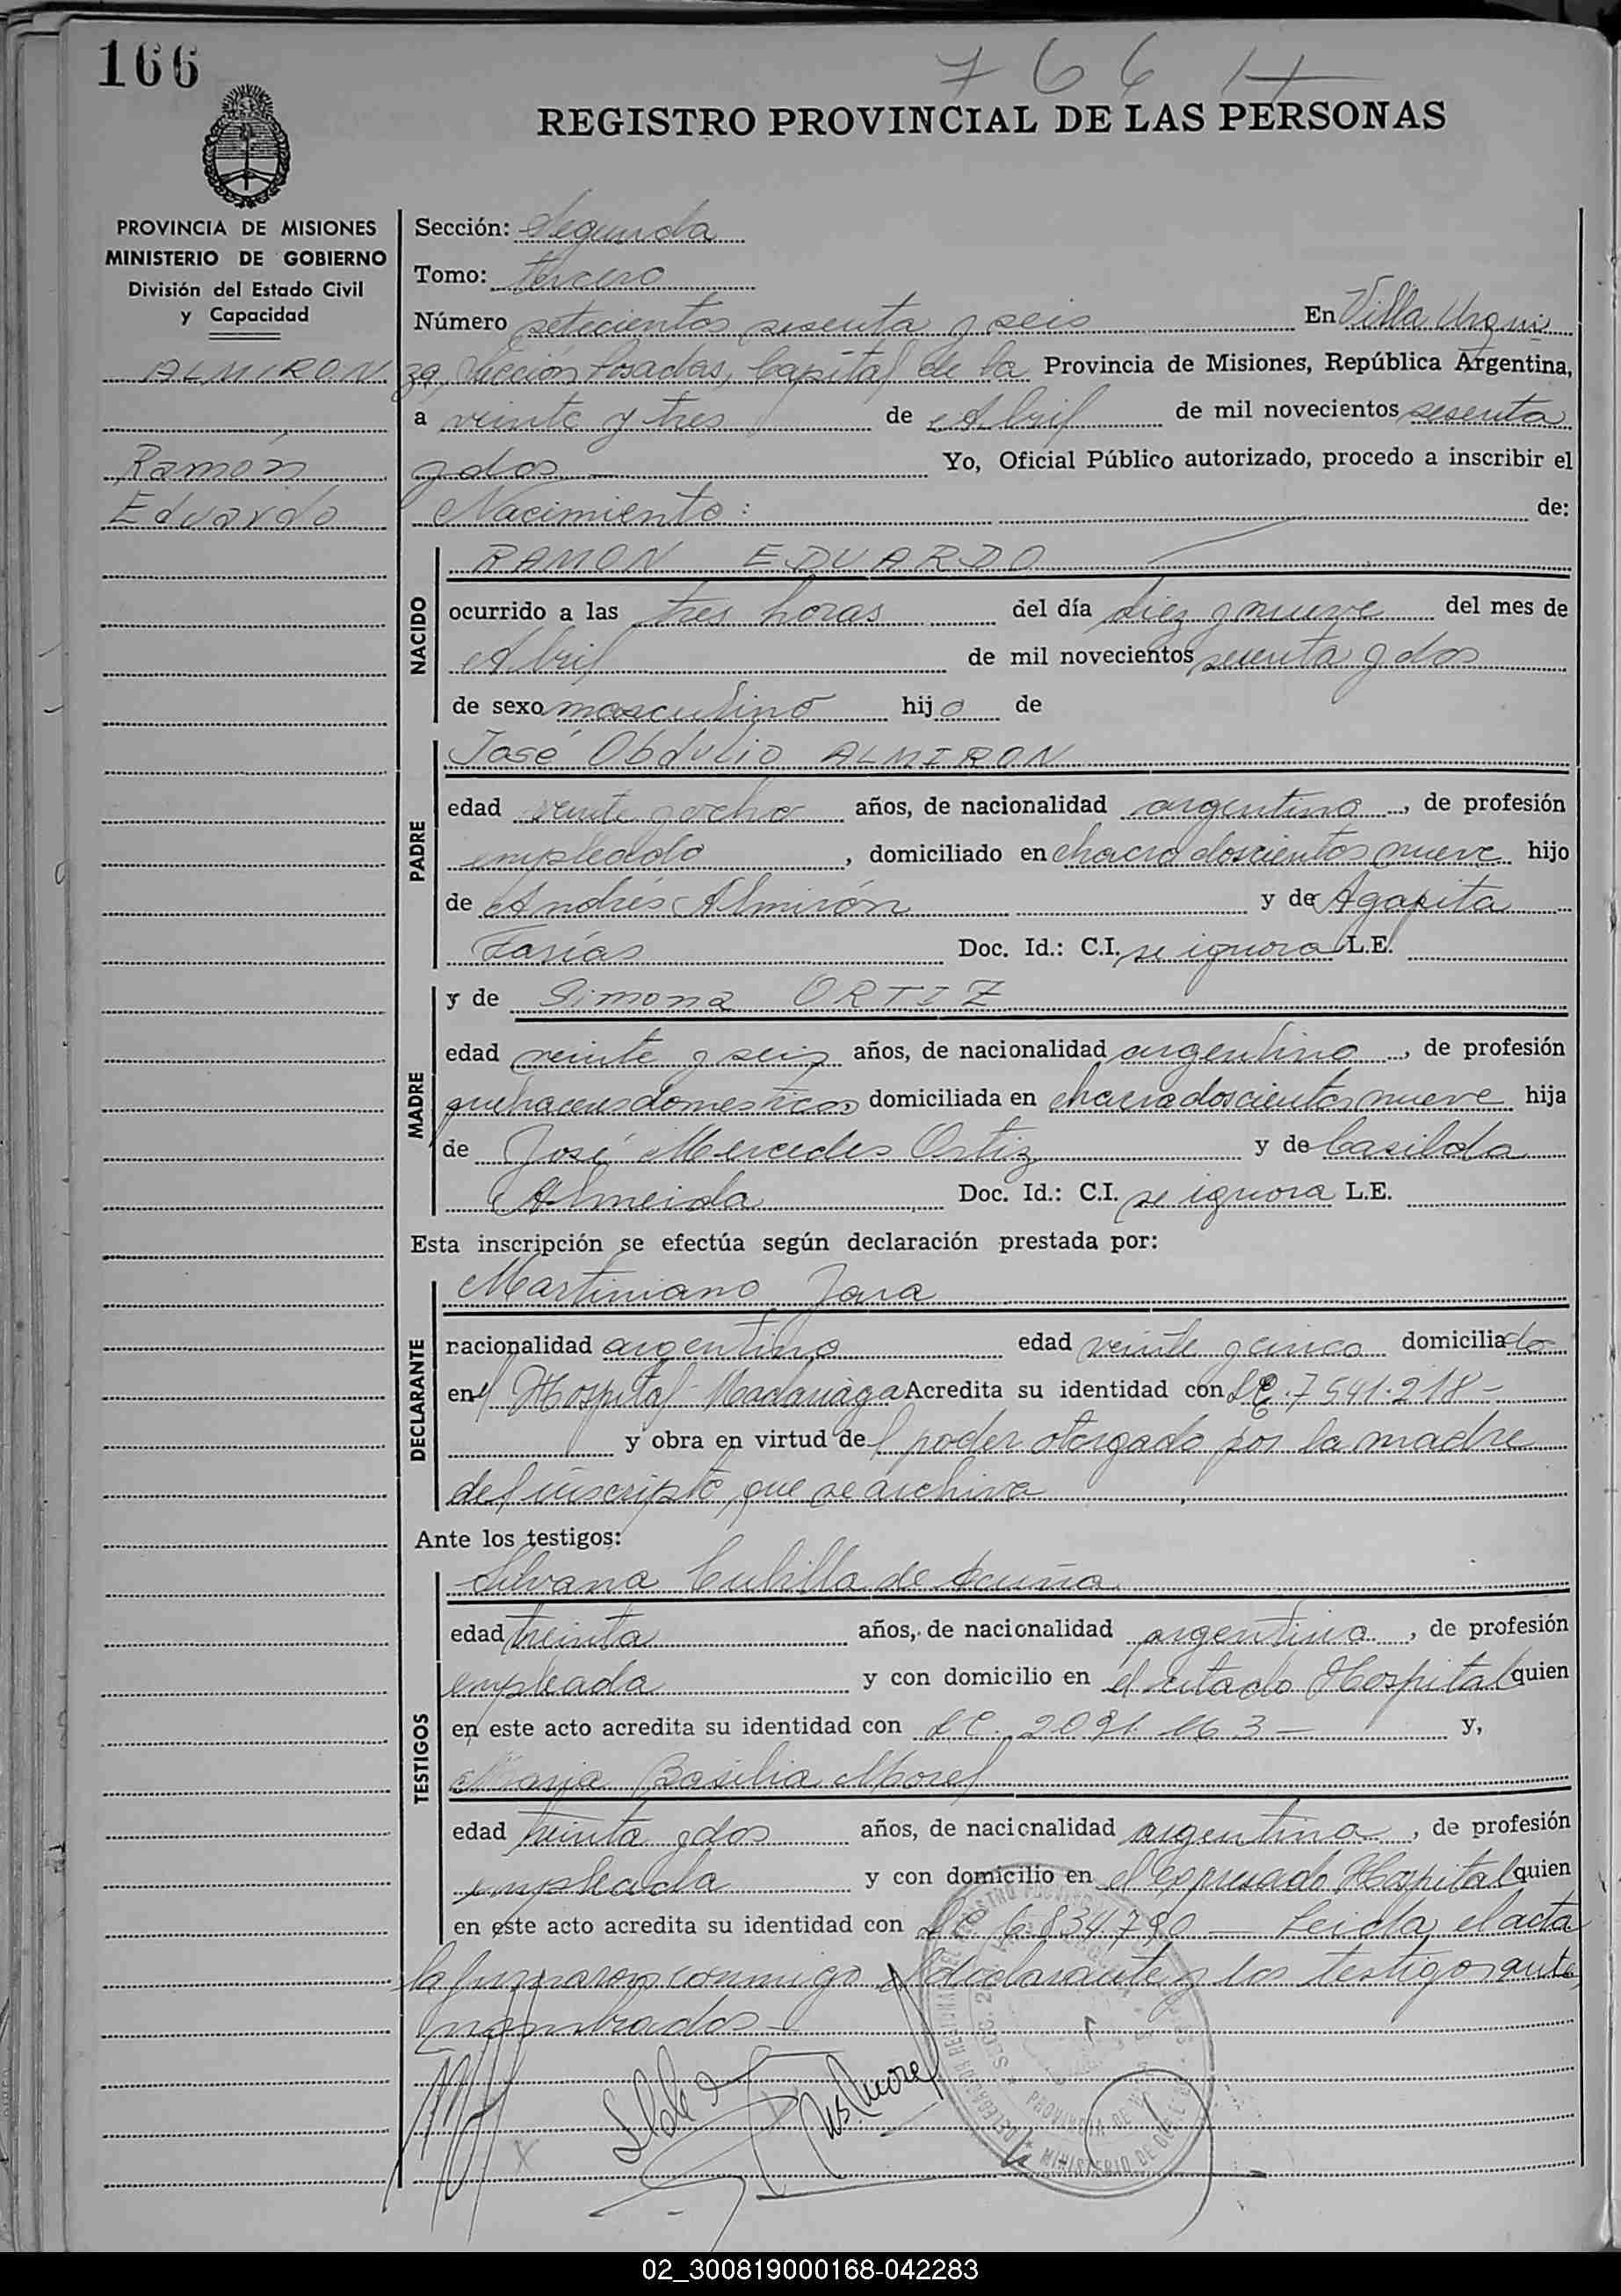 166
766
REGISTRO PROVINCIAL DE LAS PERSONAS
PROVINCIA DE MISIONES
MINISTERIO DE GOBIERNO
División del Estado Civil
y Capacidad
ALMIRON
Ramón
Eduardo
Sección: Segunda
Tomo: tercero
Número setecientos sesenta y seis En Villa Urqui
za, Sección Posadas, Capital de la Provincia de Misiones, República Argentina,
a veinte y tres de Abril de mil novecientos sesenta
y dos Yo, Oficial Público autorizado, procedo a inscribir el
Nacimiento: de:
NACIDO
RAMON EDUARDO
ocurrido a las tres horas del día diez y nueve del mes de
Abril de mil novecientos sesenta y dos
de sexo masculino hijo de
PADRE
José Obdulio ALMIRON
edad veinte y ocho años, de nacionalidad argentina, de profesión
empleado, domiciliado en chacra doscientos nueve hijo
de Andrés Almirón y de Agapita
Farías Doc. Id.: C.I. se ignora L.E.
MADRE
y de Simona ORTIZ
edad veinte y seis años, de nacionalidad argentina, de profesión
quehaceres domesticos domiciliada en chacra doscientos nueve hija
de José Mercedes Ortiz y de Casilda
Almeida Doc. Id.: C.I. se ignora L.E.
Esta inscripción se efectúa según declaración prestada por:
DECLARANTE
Martiniano Jara
nacionalidad argentina edad veinte y cinco domiciliado
en el Hospital Madariaga Acredita su identidad con LE. 7541.218-
y obra en virtud del poder otorgado por la madre
del inscripto, que se archiva
Ante los testigos:
TESTIGOS
Silvana Cubilla de Acuña
edad treinta años, de nacionalidad argentina, de profesión
empleada y con domicilio en el citado Hospital quien
en este acto acredita su identidad con LC. 2091.163- y,
Maria Basilia Morel
edad treinta y dos años, de nacionalidad argentina, de profesión
empleada y con domicilio en el expresado Hospital quien
en este acto acredita su identidad con LC 6.834.790 - Leida el acta
la firmaron conmigo el declarante y los testigos ante
nombrados -
02_300819000168-042283